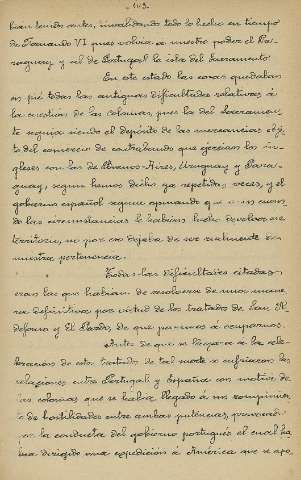 103.
bían tenido antes, invalidando todo lo hecho en tiempo
de Fernando VI pues volvía a nuestro poder el Pa-
raguay y al de Portugal la isla del Sacramento
En este estado las cosas quedaban
en pié todas las antiguas dificultades relativas á
la cuestión de las colonias, pues la del Sacramen-
to seguía siendo el depósito de las mercancías obje-
to del comercio de contrabando que ejercían los in-
gleses con los de Buenos-Aires, Uruguay y Para-
guay, segun hemos dicho ya repetidas veces, y el
gobierno español seguía opinando que si en cuan-
do las circunstancias le habían hecho devolver ese
territorio, no por eso dejaba de ser realmente de
nuestra pertenencia.
Todas las dificultades citadas
eran las que habían de resolverse de una mane-
ra definitiva por virtud de los tratados de San Il-
defonso y El Pardo, de que pasamos á ocuparnos.
Antes de que se llegara á la cele-
bracion de estos tratados de tal suerte se enfriaron las
relaciones entre Portugal y España con motivo de
las colonias que se había llegado á un rompimien-
to de hostilidades entre ambas potencias, provocado
por la conducta del gobierno portugués el cual ha-
bía dirigido una expedición á América que se apo